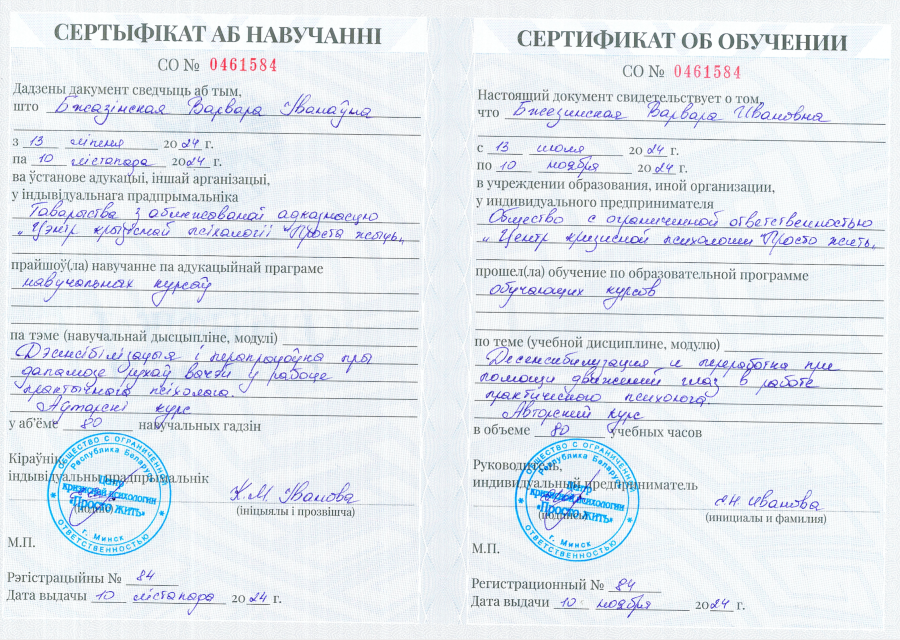 СЕРТЫФІКАТ АБ НАВУЧАННІ
СО № 0461584
Дадзены дакумент сведчыць аб тым,
што Бжэзінская Варвара Іванаўна
з 13 ліпеня 2024 г.
па 10 лістапада 2024 г.
ва ўстанове адукацыі, іншай арганізацыі,
у індывідуальнага прадпрымальніка
Таварыства з абмежаванай адказнасцю
„Цэнтр крызіснай псіхалогіі "Проста жыць„
прайшоў(ла) навучанне па адукацыйнай праграме
навучальных курсаў
па тэме (навучальнай дысцыпліне, модулі)
Дэсенсібілізацыя і перапрацоўка пры
дапамозе рухаў вачэй у рабоце
практычнага псіхолага.
Аўтарскі курс
у аб'ёме 80 навучальных гадзін
Кіраўнік,
індывідуальны прадпрымальнік
К.М. Іванова
(ініцыялы і прозвішча)
ОБЩЕСТВО С ОГРАНИЧЕННОЙ
ОТВЕТСТВЕННОСТЬЮ
Республика Беларусь
Центр
кризисной психологии
"Просто жить"
г. Минск
М.П.
Рэгістрацыйны № 84
Дата выдачы 10 лістапада 2024 г.
СЕРТИФИКАТ ОБ ОБУЧЕНИИ
СО № 0461584
Настоящий документ свидетельствует о том,
что Бжезинская Варвара Ивановна
с 13 июля 2024 г.
по 10 ноября 2024 г.
в учреждении образования, иной организации,
у индивидуального предпринимателя
Общество с ограниченной ответственностью
„Центр кризисной психологии "Просто жить„
прошел(ла) обучение по образовательной программе
обучающих курсов
по теме (учебной дисциплине, модулю)
Десенсибилизация и переработка при
помощи движений глаз в работе
практического психолога.
Авторский курс
в объеме 80 учебных часов
Руководитель,
индивидуальный предприниматель
Иванова
(подпись)
(инициалы и фамилия)
ОБЩЕСТВО С ОГРАНИЧЕННОЙ
ОТВЕТСТВЕННОСТЬЮ
Республика Беларусь
Центр
кризисной психологии
"Просто жить"
г. Минск
М.П.
Регистрационный № 84
Дата выдачи 10 ноября 2024 г.